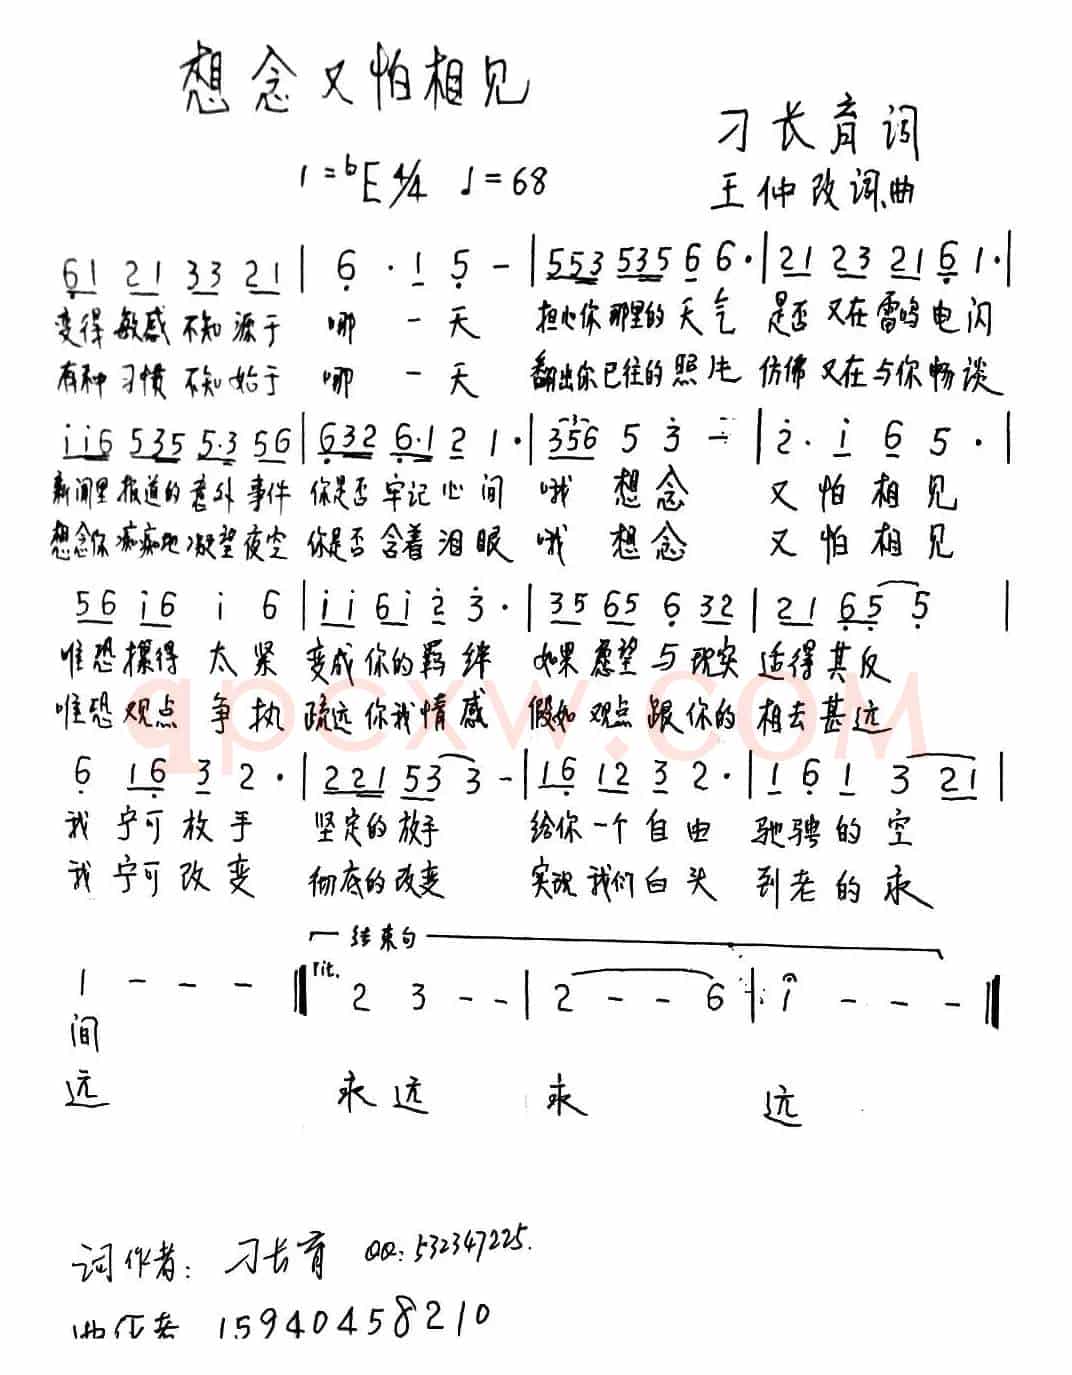 想念又怕相见
刁长育词
1=bE 4/4 ♩=68
王仲改词、曲
61 21 33 21 | 6 · 1 5 - | 553 535 6 6· | 21 23 21 6 1· |
变得敏感不知源于 哪一天 担心你那里的天气 是否又在雷鸣电闪
有种习惯不知始于 哪一天 翻出你已往的照片 仿佛又在与你畅谈
i i 6 535 5·3 56 | 632 6·1 2 1· | 356 5 3 - | 2· i 6 5· |
新闻里报道的意外事件 你是否牢记心间 哦 想念 又怕相见
想念你痴痴地凝望夜空 你是否含着泪眼 哦 想念 又怕相见
56 i6 i 6 | i i 6 i 2 3· | 35 65 6 32 | 21 65 5 |
唯恐攥得太紧 变成你的羁绊 如果愿望与现实 适得其反
唯恐观点争执 疏远你我情感 假如观点跟你的 相去甚远
6 16 3 2· | 221 53 3 - | 16 12 3 2· | 1 6 1 3 21 |
我宁可放手 坚定的放手 给你一个自由 驰骋的空
我宁可改变 彻底的改变 实现我们白头 到老的永
结束句
1 - - - ‖ rit. 2 3 - - | 2 - - 6 | i - - - ‖
间
远 永远 永 远
词作者: 刁长育 QQ: 532347225.
曲作者 15940458210
qpcxw.com